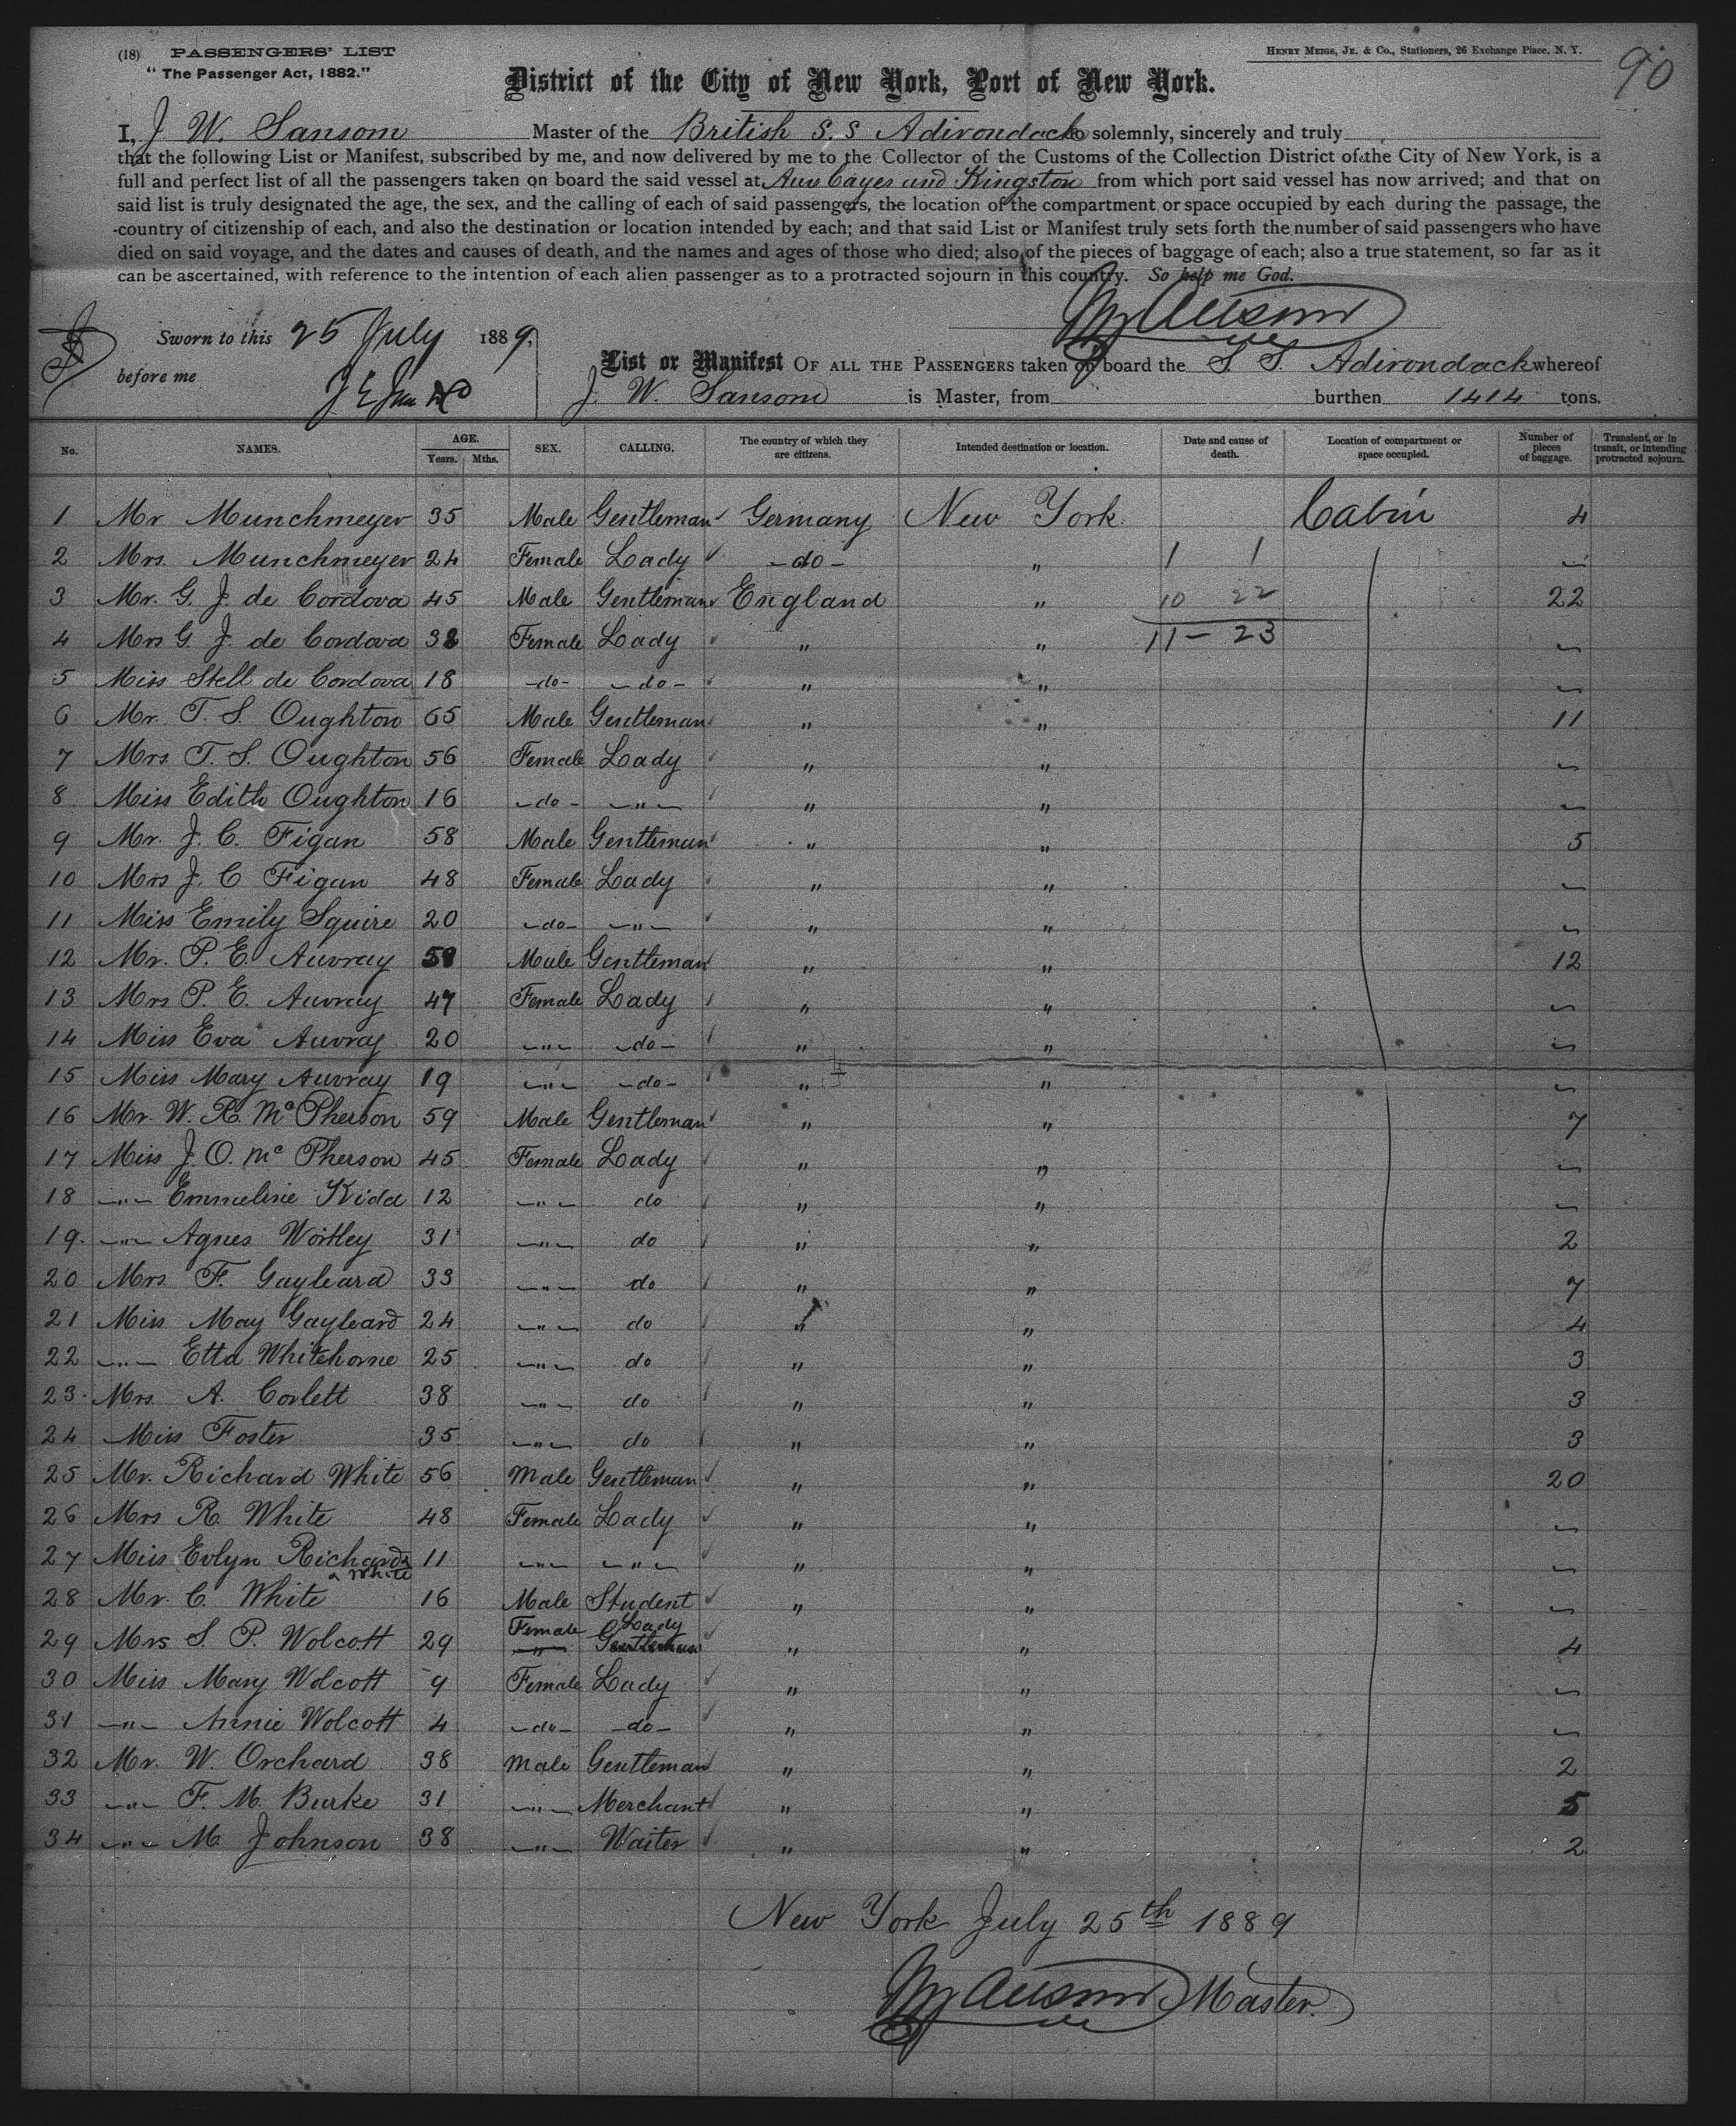 (18) PASSENGERS' LIST
"The Passenger Act, 1882."
HENRY MEIGS, JR. & CO., Stationers, 26 Exchange Place, N. Y.
90
District of the City of New York, Port of New York.
I, J W. Sansom Master of the British S. S Adirondack do solemnly, sincerely and truly
that the following List or Manifest, subscribed by me, and now delivered by me to the Collector of the Customs of the Collection District of the City of New York, is a
full and perfect list of all the passengers taken on board the said vessel at Aux Cayes and Kingston from which port said vessel has now arrived; and that on
said list is truly designated the age, the sex, and the calling of each of said passengers, the location of the compartment or space occupied by each during the passage, the
country of citizenship of each, and also the destination or location intended by each; and that said List or Manifest truly sets forth the number of said passengers who have
died on said voyage, and the dates and causes of death, and the names and ages of those who died; also of the pieces of baggage of each; also a true statement, so far as it
can be ascertained, with reference to the intention of each alien passenger as to a protracted sojourn in this country. So help me God.
Sworn to this 25 July 1889,
before me
List or Manifest OF ALL THE PASSENGERS taken on board the S. S. Adirondack whereof
J. W. Sansom is Master, from burthen 1414 tons.
No. NAMES. AGE. Years. Mths. SEX. CALLING. The country of which they are citizens. Intended destination or location. Date and cause of death. Location of compartment or space occupied. Number of pieces of baggage. Transient, or in transit, or intending protracted sojourn.
1 Mr Munchmeyer 35 Male Gentleman Germany New York Cabin 4
2 Mrs. Munchmeyer 24 Female Lady -do- " 1 1
3 Mr. G. J. de Cordova 45 Male Gentleman England " 10 22 22
4 Mrs G. J. de Cordova Female Lady " " 11 - 23
5 Miss Stell de Cordova 18 -do- -do- " "
6 Mr. T. S. Oughton 65 Male Gentleman " " 11
7 Mrs T. S. Oughton 56 Female Lady " "
8. Miss Edith Oughton 16 -do- -"- " "
9 Mr. J. C. Figan 58 Male Gentleman " " 5
10 Mrs J. C Figan 48 Female Lady " "
11 Miss Emily Squire 20 -do- -"- " "
12 Mr. P. E. Auvray Male Gentleman " " 12
13 Mrs P. E. Auvray 47 Female Lady " "
14 Miss Eva Auvray 20 -"- -do- " "
15 Miss Mary Auvray 19 -"- -do- " "
16 Mr. W. R. McPherson 59 Male Gentleman " " 7
17 Miss J. O. Mc Pherson 45 Female Lady " "
18 -"- Emmeline Kidd 12 -"- do " "
19. -"- Agnes Wortley 31 -"- do " " 2
20 Mrs. F. Gayleard 33 -"- do " " 7
21 Miss May Gayleard 24 -"- do " " 4
22 -"- Etta Whitehorne 25 -"- do " " 3
23. Mrs. A. Corlett 38 -"- do " " 3
24 Miss Foster 35 -"- do " " 3
25 Mr. Richard White 56 Male Gentleman " " 20
26 Mrs R. White 48 Female Lady " "
27 Miss Evlyn Richards 11 -"- -"- " "
White
28 Mr. C. White 16 Male Student " "
Female Lady
29 Mrs S. P. Wolcott 29 -"- Gentleman " " 4
30 Miss Mary Wolcott 9 Female Lady " "
31 -"- Annie Wolcott 4 -do- -do- " "
32 Mr. W. Orchard 38 Male Gentleman " " 2
33 -"- F. M. Burke 31 -"- Merchant " " 5
34 -"- M. Johnson 38 -"- Waiter " " 2
New York July 25th 1889
Master.